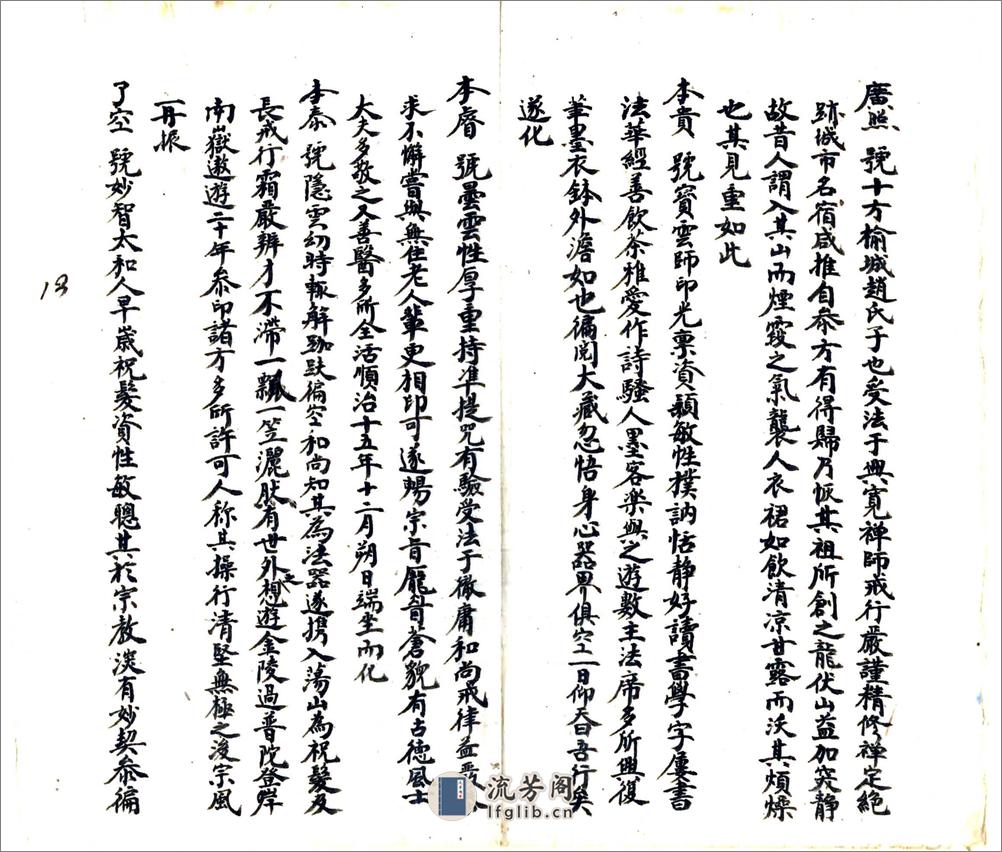 廣照 號十方榆城趙氏子也受法于興寬禅師戒行嚴謹精修禅定絕
跡城市名宿咸推自叅方有得歸乃恢其祖所創之龍伏山益加突静
故昔人謂入其山而煙霞之氣襲人衣裙如飲清凉甘露而沃其煩燥
也其見重如此
本貴 號寳雲師印光禀資頴敏性樸訥恬静好讀書學字屢書
法華經善飲茶雅愛作詩騷人墨客楽與之遊數主法席多所興復
筆墨衣鉢外澹如也徧閲大藏忽悟身心器界俱空一日仰天曰吾行矣
遂化
本睿 號曇雲性厚重持凖提咒有驗受法于徹庸和尚戒律益嚴
求不懈嘗與無住老人輩更相印可遂暢宗旨厖眉蒼貌有古德風士
大夫多敬之又善醫多所全活順治十五年十二月朔日端坐而化
本泰 號隱雲幼時輙解跏趺徧空和尚知其為法器遂携入蕩山為祝髮及
長戒行霜嚴辨才不滯一瓢一笠灑肰有世外之想遊金陵過普陀登岸
南嶽遨遊二十年叅印諸方多所許可人称其操行清堅無極之後宗風
一再振
了空 號妙智太和人早歲祝髮資性敏聰其於宗教淡有妙契叅徧
18
流芳阁
lfglib.cn